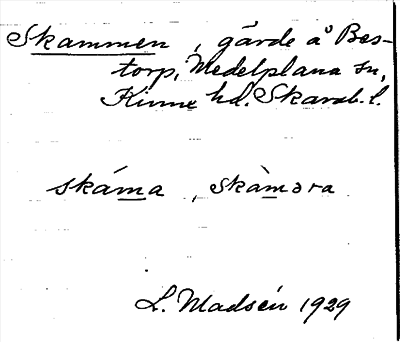 Skammen, gärde å Bes-
torp, Medelplana sn,
Kinne hd. Skarab. l.
skáma, skàməra
L. Madsén 1929